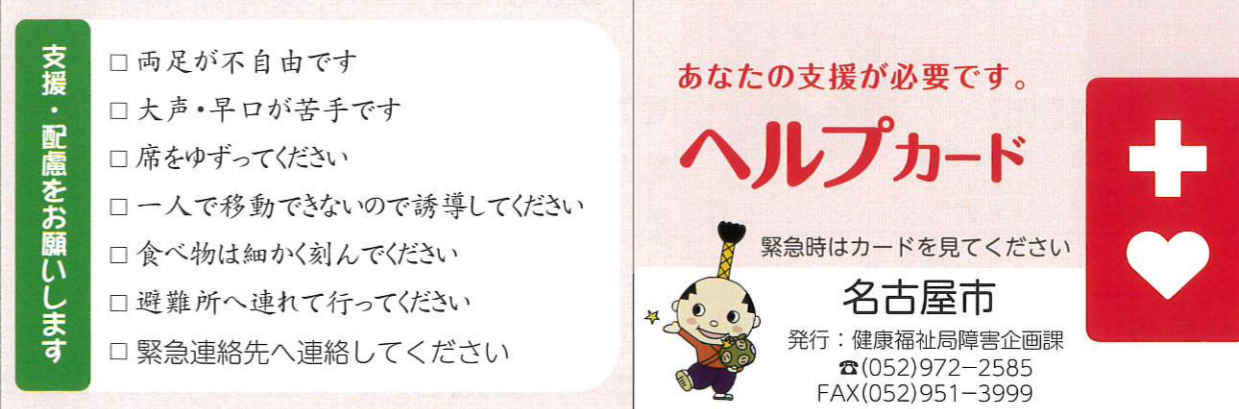 支援・配慮をお願いします
□ 両足が不自由です
□ 大声・早口が苦手です
□ 席をゆずってください
□ 一人で移動できないので誘導してください
□ 食べ物は細かく刻んでください
□ 避難所へ連れて行ってください
□ 緊急連絡先へ連絡してください
あなたの支援が必要です。
ヘルプカード
緊急時はカードを見てください
名古屋市
発行：健康福祉局障害企画課
☎(052)972−2585
FAX(052)951−3999